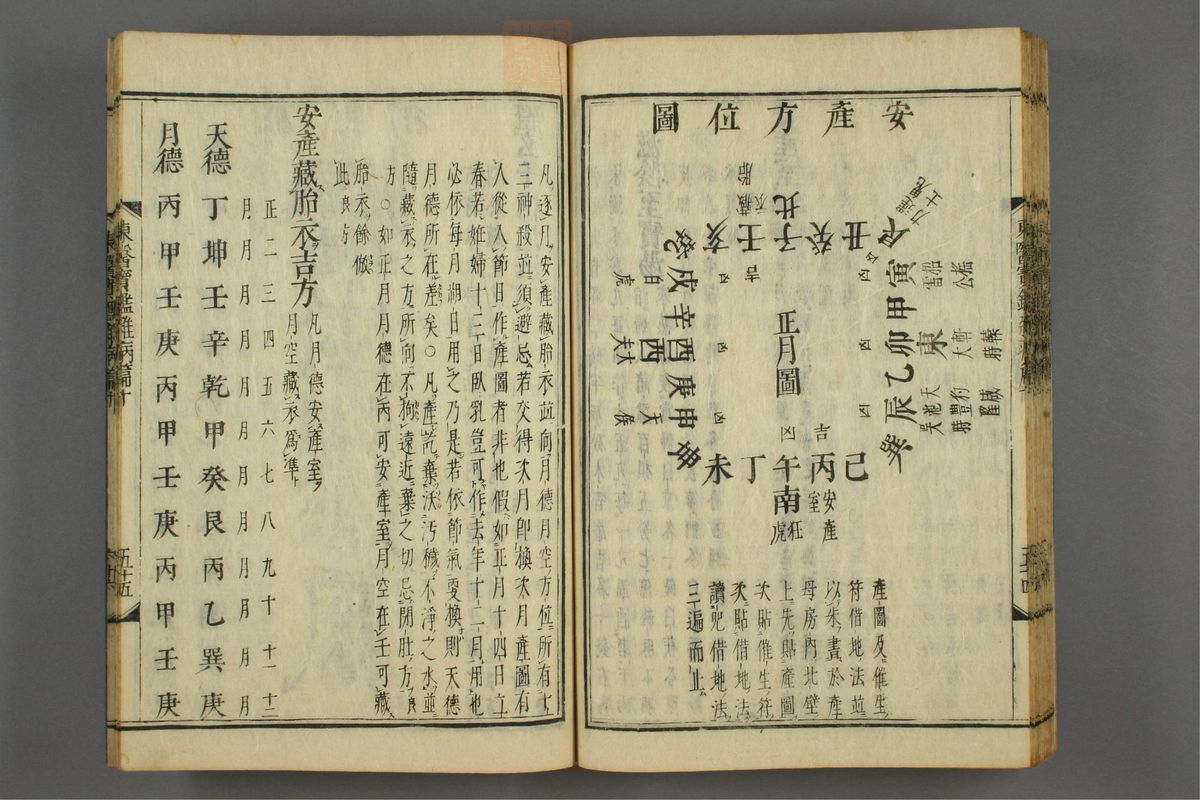 安產方位圖
北
不藏
胎
子
壬
吉
亥
凶
癸
丑
凶
艮
寅
甲
卯
乙
辰
巽
東
雷招
公招
大軒
天
吳池
豹
轅
正月圖
乾
戌
辛
酉
庚
申
坤
白
虎
西
大夫
天
侯
未
丁
午
丙
巳
凶
吉
南
狂
虎
安產
室
產圖及催生
符借地法並
以朱書於產
母房內北壁
上先貼產圖
次貼催生符
次貼借地法
讀呪借地法
三遍而止
東醫寶鑑雜病篇十
凡逐月安產藏胎衣並向月德月空方位所有大
三神殺並須避忌若交得次月卽換次月產圖有
人從入節日作產圖者非也假如正月十四日立
春若姙婦十三日臥乳豈可作去年十二月用也
必依每月朔日用之乃是若依節氣更換則天德
月德所在差矣○凡產訖棄沃汚穢不淨之水並
隨藏衣之方所向不拘遠近棄之切忌閉肚方
○如正月月德在丙可安產室月空在壬可藏
胎衣餘倣
此良方
安產藏胎衣吉方
凡月德安產室
月空藏衣爲準
正月 二月 三月 四月 五月 六月 七月 八月 九月 十月 十一月 十二月
天德 丁 坤 壬 辛 乾 甲 癸 艮 丙 乙 巽 庚
月德 丙 甲 壬 庚 丙 甲 壬 庚 丙 甲 壬 庚
東醫寶鑑雜病篇十
五十五